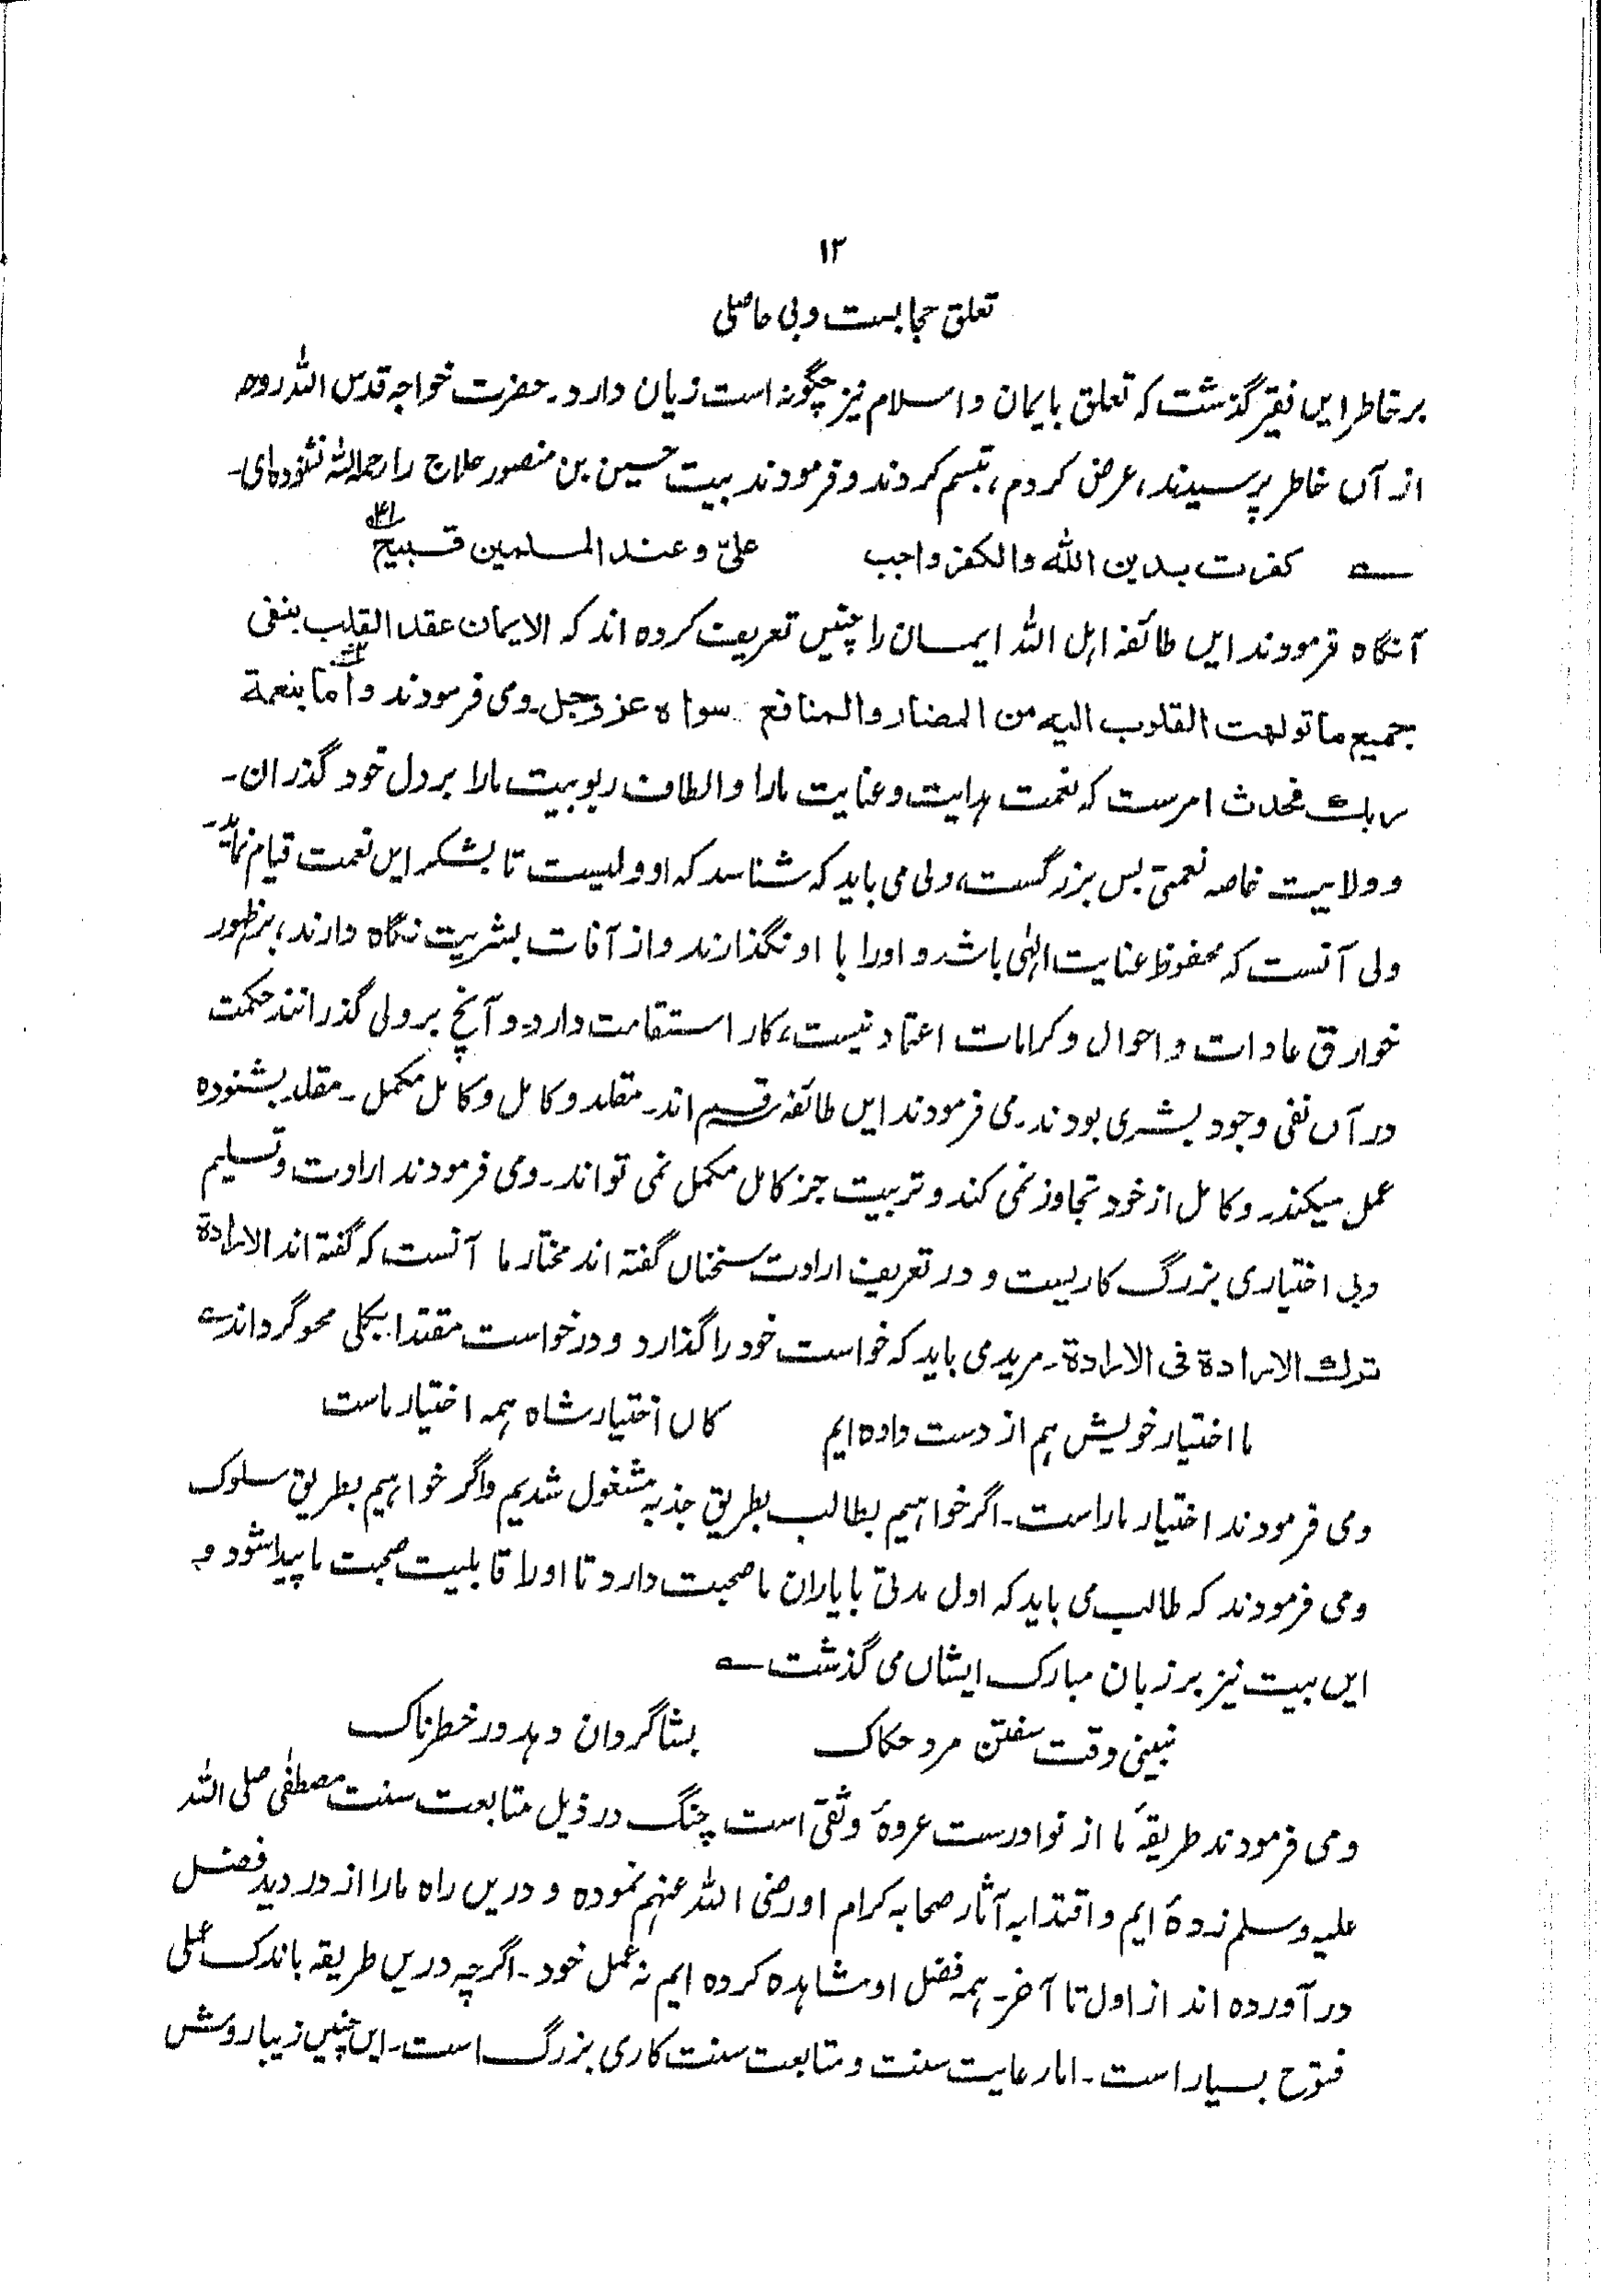 ۱۲
تعلق حجابست و بی حاصلی
بر خاطر ایں فقیر گذشت کہ تعلق بایمان و اسلام نیز چگونہ است زیان دارد۔ حضرت خواجہ قدس اللہ روحہ
از آں خاطر پرسیدند، عرض کردم، تبسم کردند و فرمودند بیت حسین بن منصور حلاج را رحمہ اللہ نشنودہ ای۔
کفرت بدین اللہ والکفر واجب علیّ و عند المسلمین قبیح
آنگاہ فرمودند ایں طائفہ اہل اللہ ایمان را چنیں تعریف کردہ اند کہ الایمان عقد القلب بنفی
جمیع ما تولہت القلوب الیہ من المضار والمنافع سواہ عز و جل۔ ومی فرمودند و اما بنعمة
ربک فحدث امرست کہ نعمت ہدایت و عنایت مارا و الطاف ربوبیت مارا بر دل خود گذران۔
و ولایت خاصہ نعمتی بس بزرگست، ولی می باید کہ شناسد کہ او ولیست تا بشکر ایں نعمت قیام نماید۔
ولی آنست کہ محفوظ عنایت الٰہی باشد و اورا با او نگذارند و از آفات بشریت نگاہ دارند، بظہور
خوارق عادات و احوال و کرامات اعتماد نیست، کار استقامت دارد و آنچ بر ولی گذرانند حکمت
در آں نفی وجود بشری بودند۔ می فرمودند ایں طائفہ سہ قسم اند۔ مقلد و کامل و کامل مکمل۔ مقلد بشنودہ
عمل میکند۔ و کامل از خود تجاوز نمی کند و تربیت جز کامل مکمل نمی تواند۔ ومی فرمودند ارادت و تسلیم
وبی اختیاری بزرگ کاریست و در تعریف ارادت سخناں گفتہ اند مختار ما آنست کہ گفتہ اند الارادة
ترک الارادة فی الارادة۔ مرید می باید کہ خواست خود را گذارد و در خواست مقتدا بیکلی محو گرداند
ما اختیار خویش ہم از دست دادہ ایم کاں اختیار شاہ ہمہ اختیار ماست
ومی فرمودند اختیار ماراست۔ اگر خواہیم بطالب بطریق جذبہ مشغول شدیم واگر خواہیم بطریق سلوک
ومی فرمودند کہ طالب می باید کہ اول مدتی با یاران ما صحبت دارد تا اورا قابلیت صحبت ما پیدا شود و
ایں بیت نیز بر زبان مبارک ایشاں می گذشت
نبینی وقت سفتن مرد حکاک بشاگردان دہد در خطرناک
ومی فرمودند طریقۂ ما از نوادرست عروۂ وثقیٰ است چنگ در ذیل متابعت سنت مصطفٰی صلی اللہ
علیہ وسلم زدہ ایم و اقتدا بہ آثار صحابہ کرام او رضی اللہ عنہم نمودہ و دریں راہ مارا از در دید فضل
در آوردہ اند از اول تا آخر۔ ہمہ فضل او مشاہدہ کردہ ایم نہ عمل خود۔ اگرچہ دریں طریقہ باندک عملی
فتوح بسیار است۔ اما رعایت سنت و متابعت سنت کاری بزرگ است۔ ایں چنیں زیبا روش